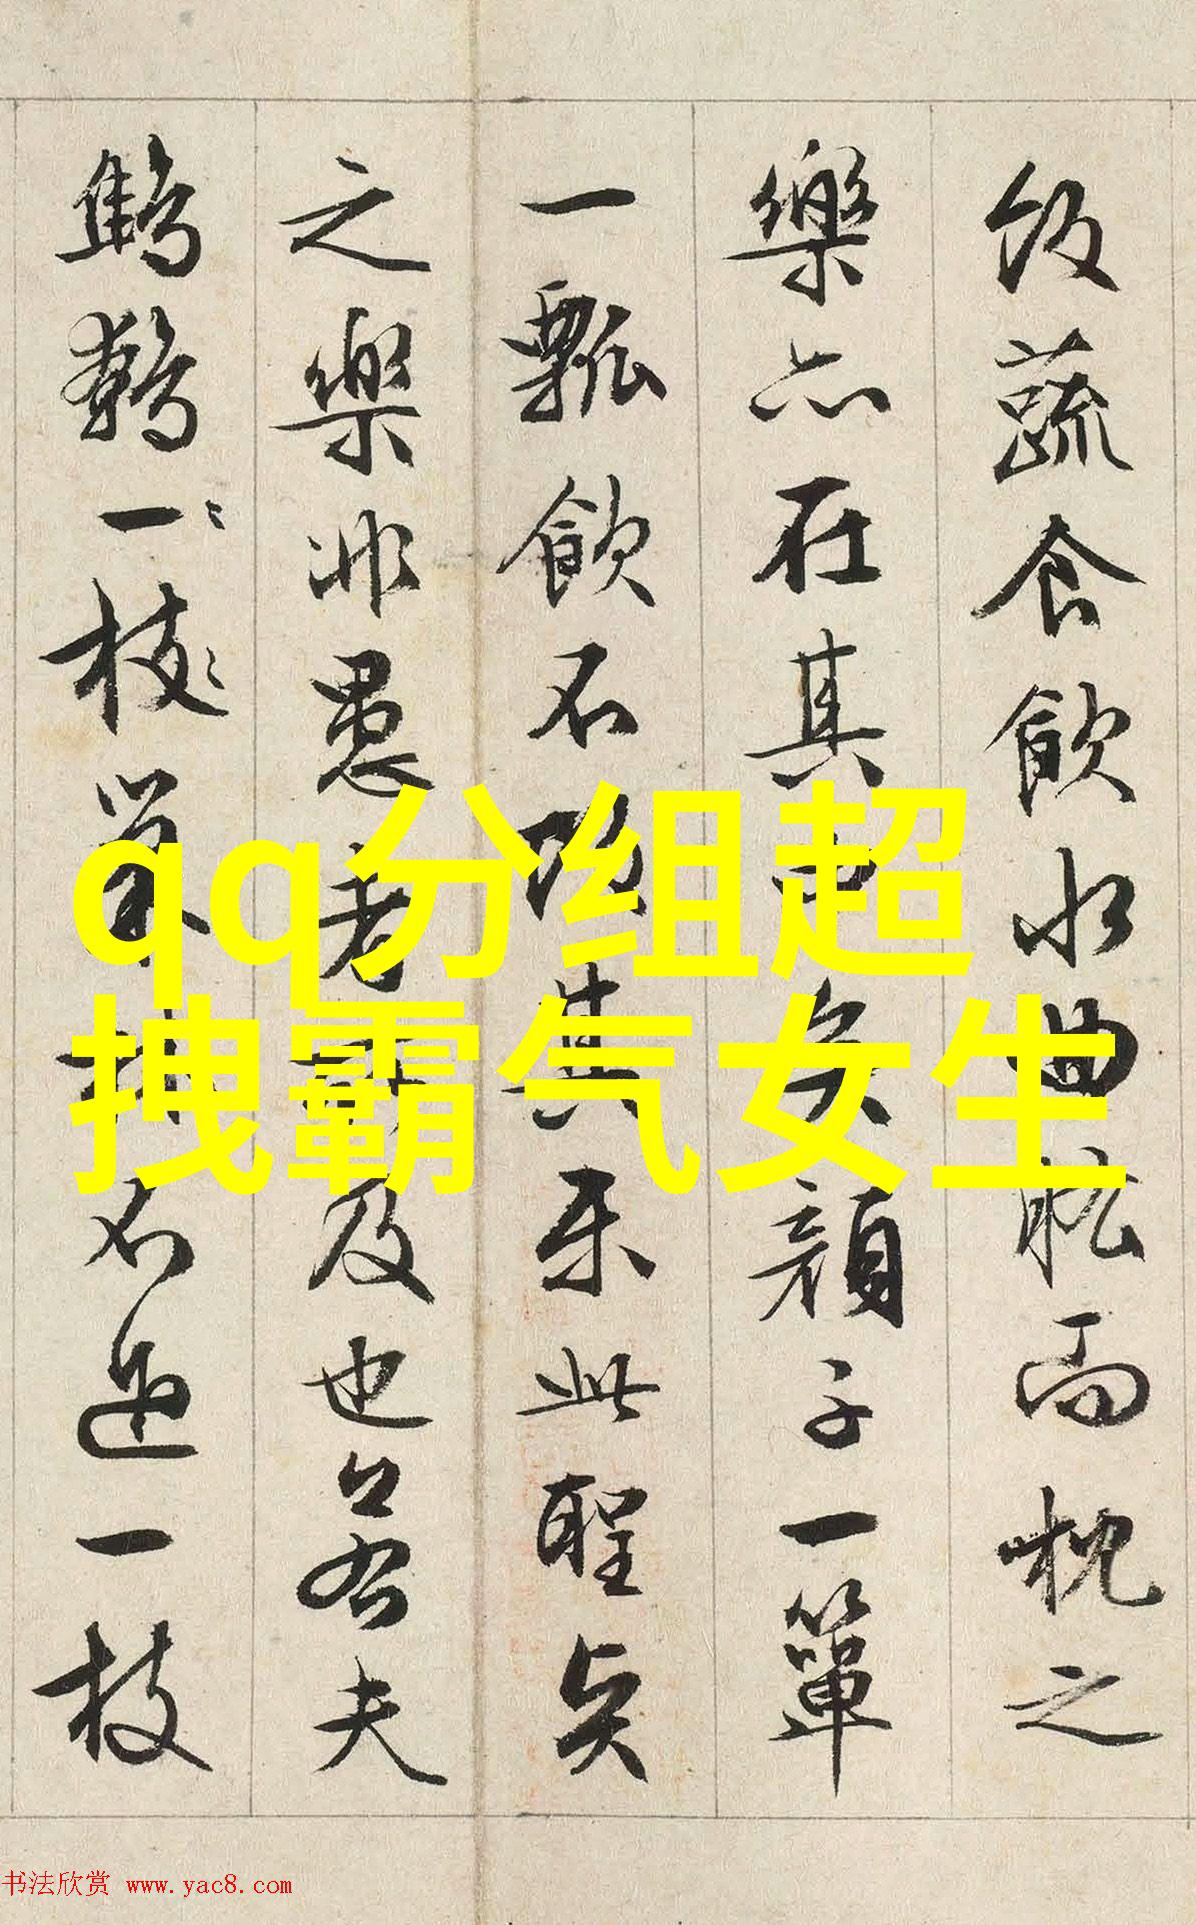 飯蔬食飲水曲肱而枕之
樂亦在其中矣顏子一簞
一瓢飲不改其樂此聖賢
之樂非愚者所及也若夫
鷦鷯一枝巢林不過一枝
qq分组超
拽霸气女生
书法欣赏 www.yac8.com